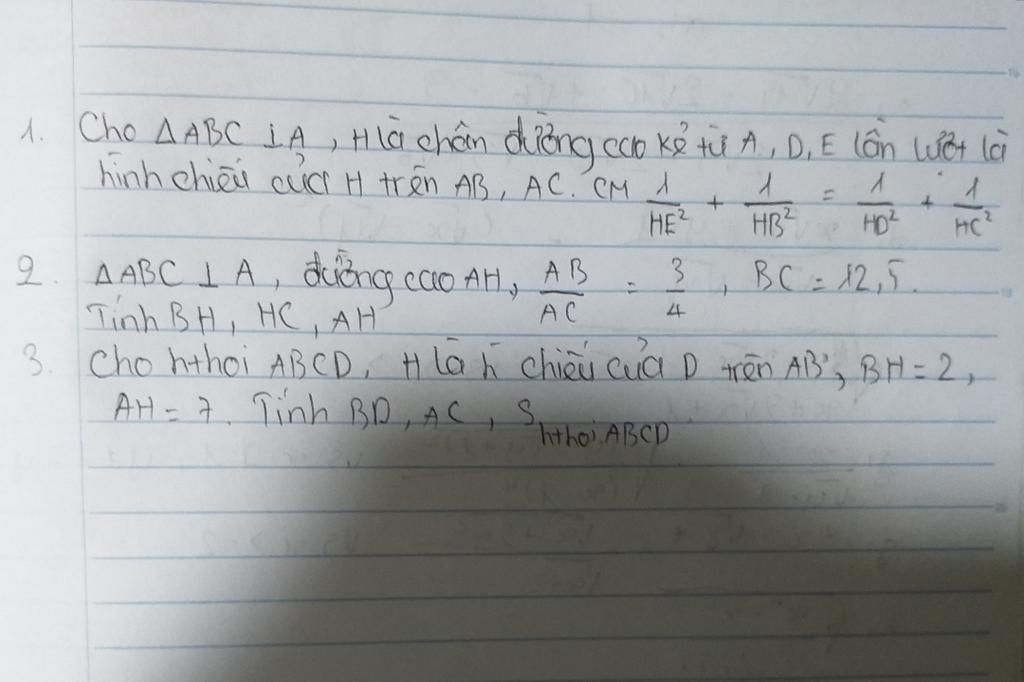 1. Cho ΔABC ⊥ A, H là chân đường cao kẻ từ A, D, E lần lượt là
hình chiếu của H trên AB, AC. CM 1/HE² + 1/HB² = 1/HD² + 1/HC²
2. ΔABC ⊥ A, đường cao AH, AB/AC = 3/4, BC = 12,5.
Tính BH, HC, AH
3. Cho h+hoi ABCD, H là h chiếu của D trên AB, BH = 2,
AH = 7. Tính BD, AC, S h+hoi ABCD